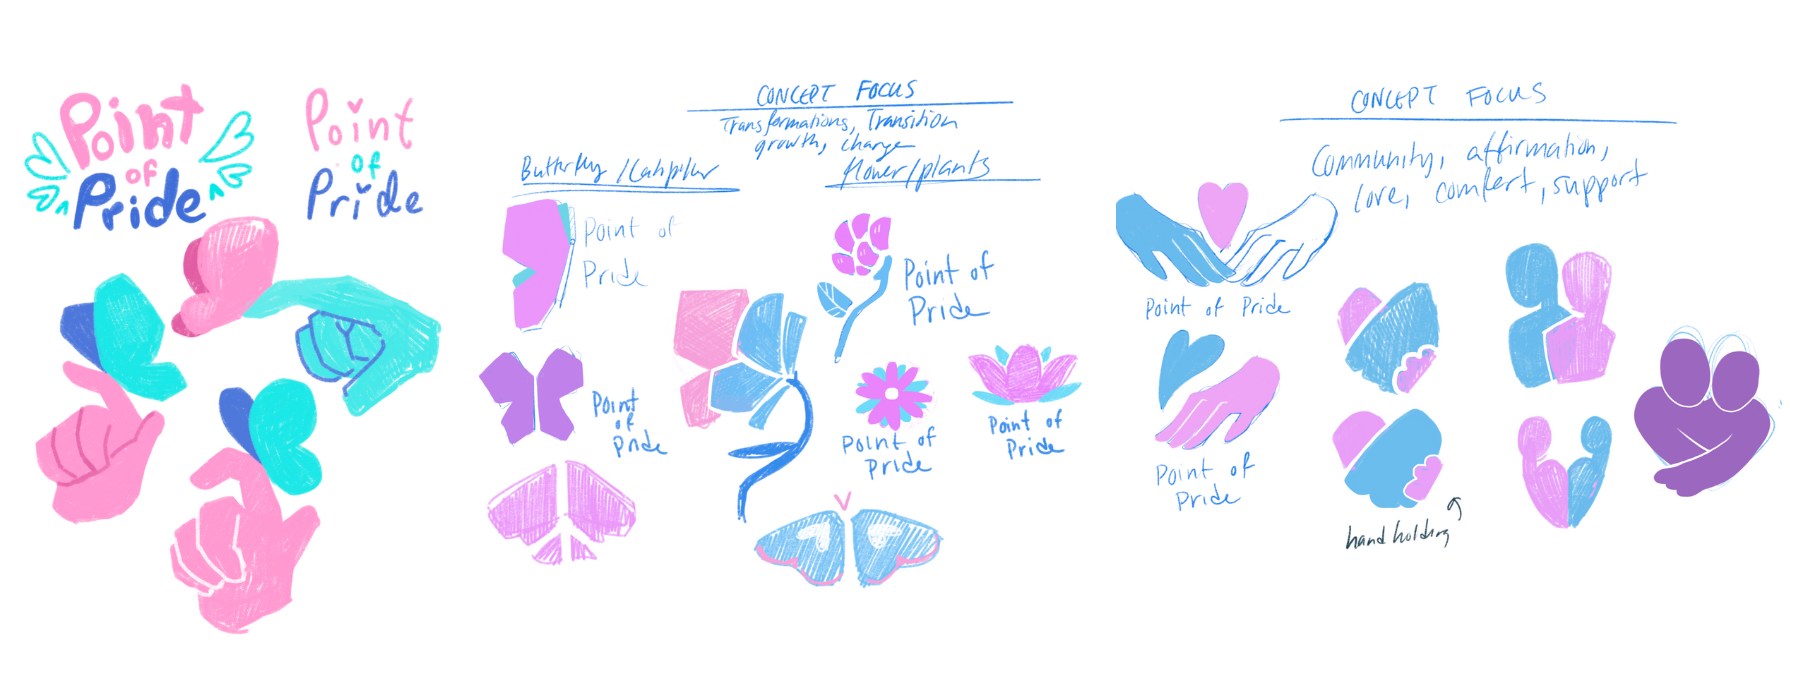 Point
of
Pride
Point
of
Pride
CONCEPT FOCUS
Transformations, Transition
growth, change
Butterfly/Catipilar
flower/plants
Point of
Pride
Point of
Pride
Point
of
Pride
Point of
Pride
Point of
Pride
CONCEPT FOCUS
Community, affirmation,
love, comfort, support
Point of Pride
Point of
Pride
hand holding